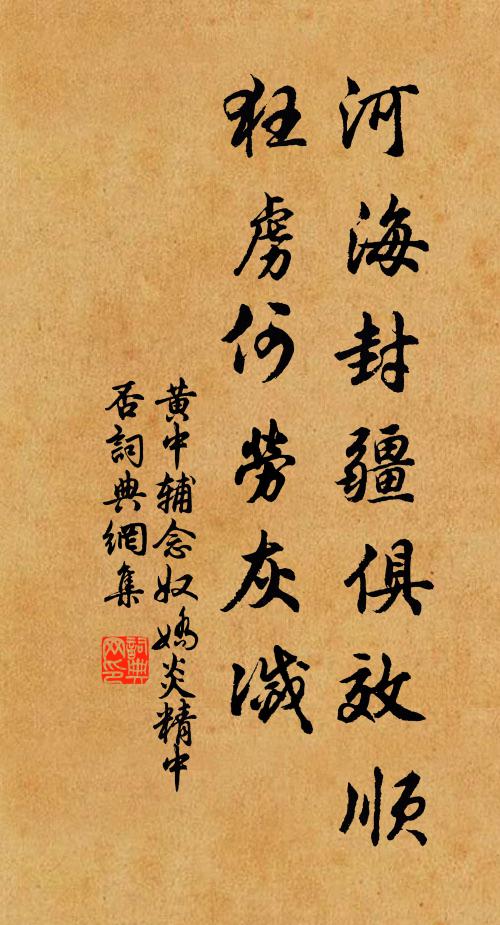 河海封疆俱效順
狂虜何勞灰滅
黄中辅念奴嬌炎精中
否詞典網集
詞典
网印